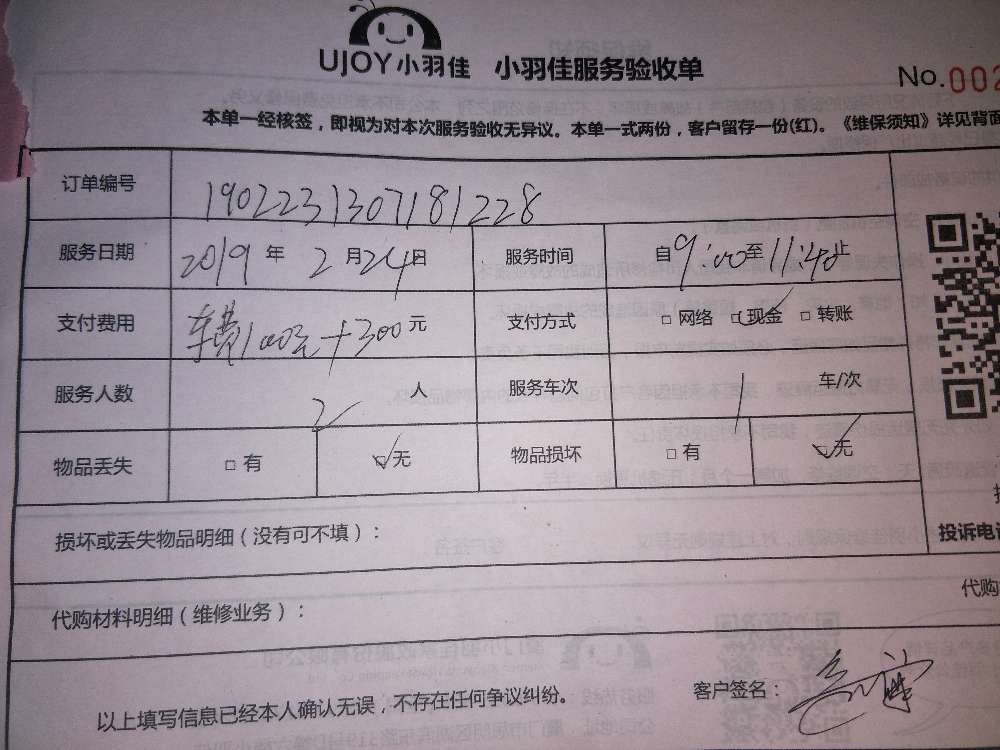 UJOY小羽佳 小羽佳服务验收单
No.002
本单一经核签，即视为对本次服务验收无异议。本单一式两份，客户留存一份(红)。《维保须知》详见背面
订单编号 1902231307181228
服务日期 2019年2月24日 服务时间 自9:00至11:40止
支付费用 车费100元+300元 支付方式 □网络 ☑现金 □转账
服务人数 2人 服务车次 1车/次
物品丢失 □有 ☑无 物品损坏 □有 ☑无
损坏或丢失物品明细（没有可不填）：
投诉电
代购材料明细（维修业务）：
代购
客户签名：
以上填写信息已经本人确认无误，不存在任何争议纠纷。